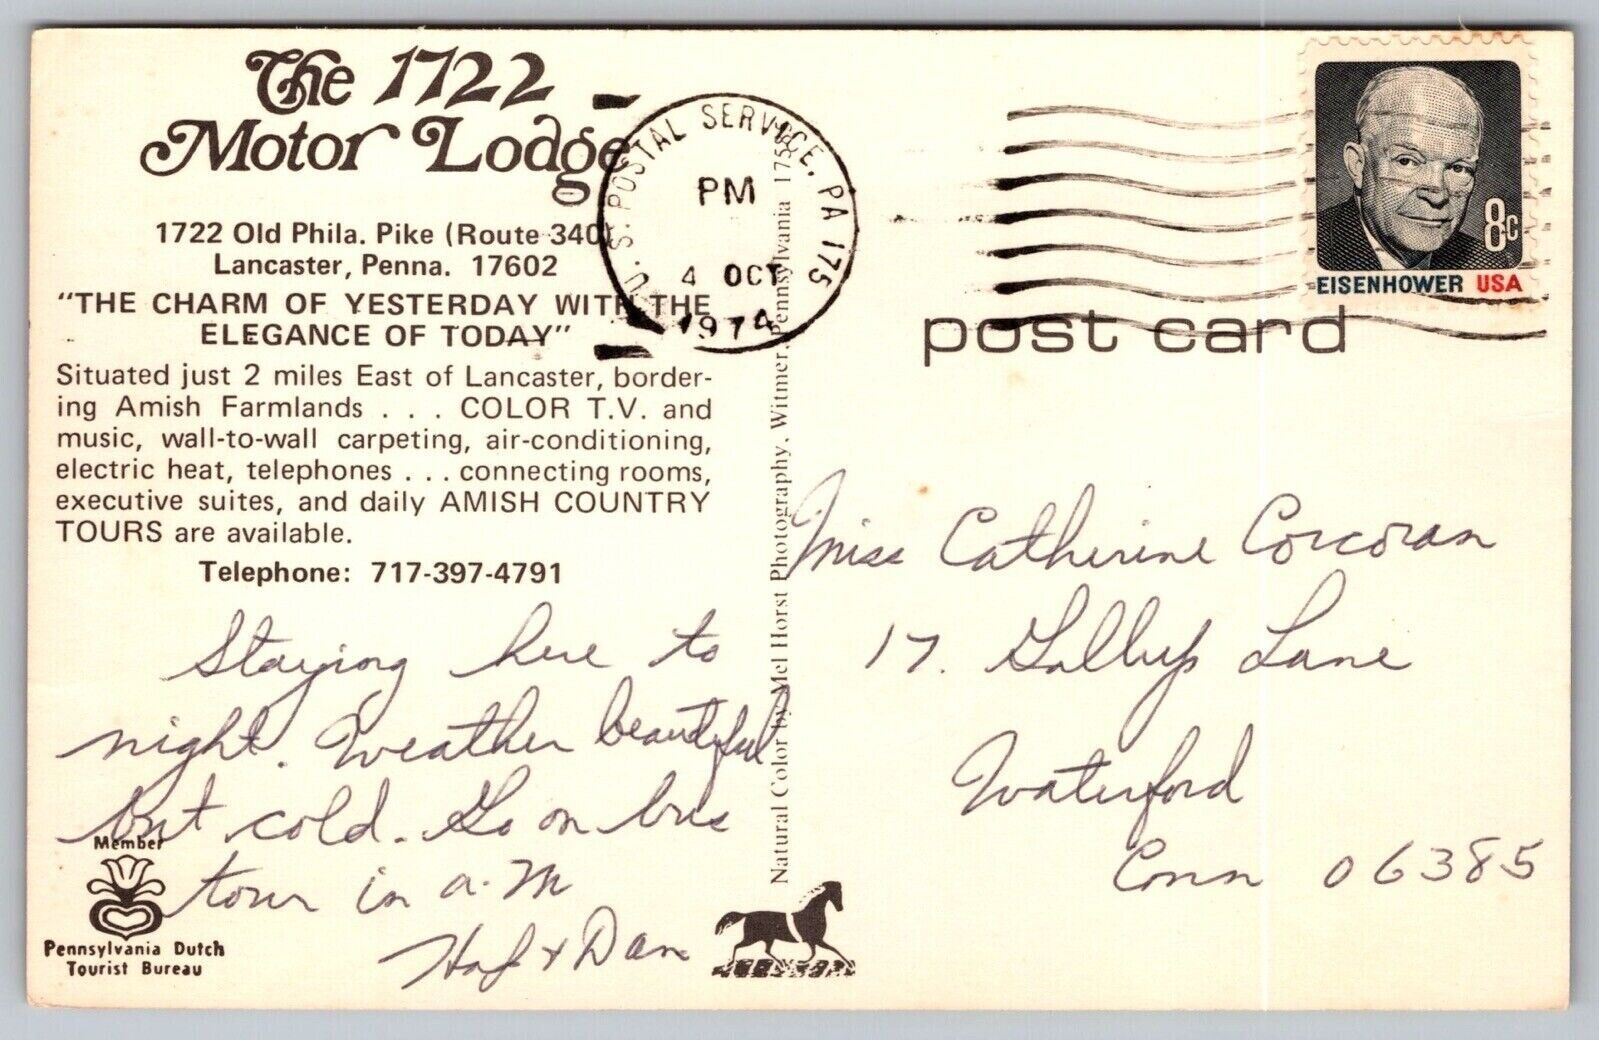 The 1722
Motor Lodge
1722 Old Phila. Pike (Route 340)
Lancaster, Penna. 17602
"THE CHARM OF YESTERDAY WITH THE
ELEGANCE OF TODAY"
Situated just 2 miles East of Lancaster, border-
ing Amish Farmlands . . . COLOR T.V. and
music, wall-to-wall carpeting, air-conditioning,
electric heat, telephones . . . connecting rooms,
executive suites, and daily AMISH COUNTRY
TOURS are available.
Telephone: 717-397-4791
Staying here to
night. Weather beautiful
but cold. Go on bus
tour in a.m
& Dan
Member
Pennsylvania Dutch
Tourist Bureau
Natural Color by Mel Horst Photography, Witmer, Pennsylvania
U.S. POSTAL SERVICE, PA 175
PM
4 OCT
1974
8c
EISENHOWER USA
post card
Miss Catherine Corcoran
17. Gallup Lane
Waterford
Conn 06385